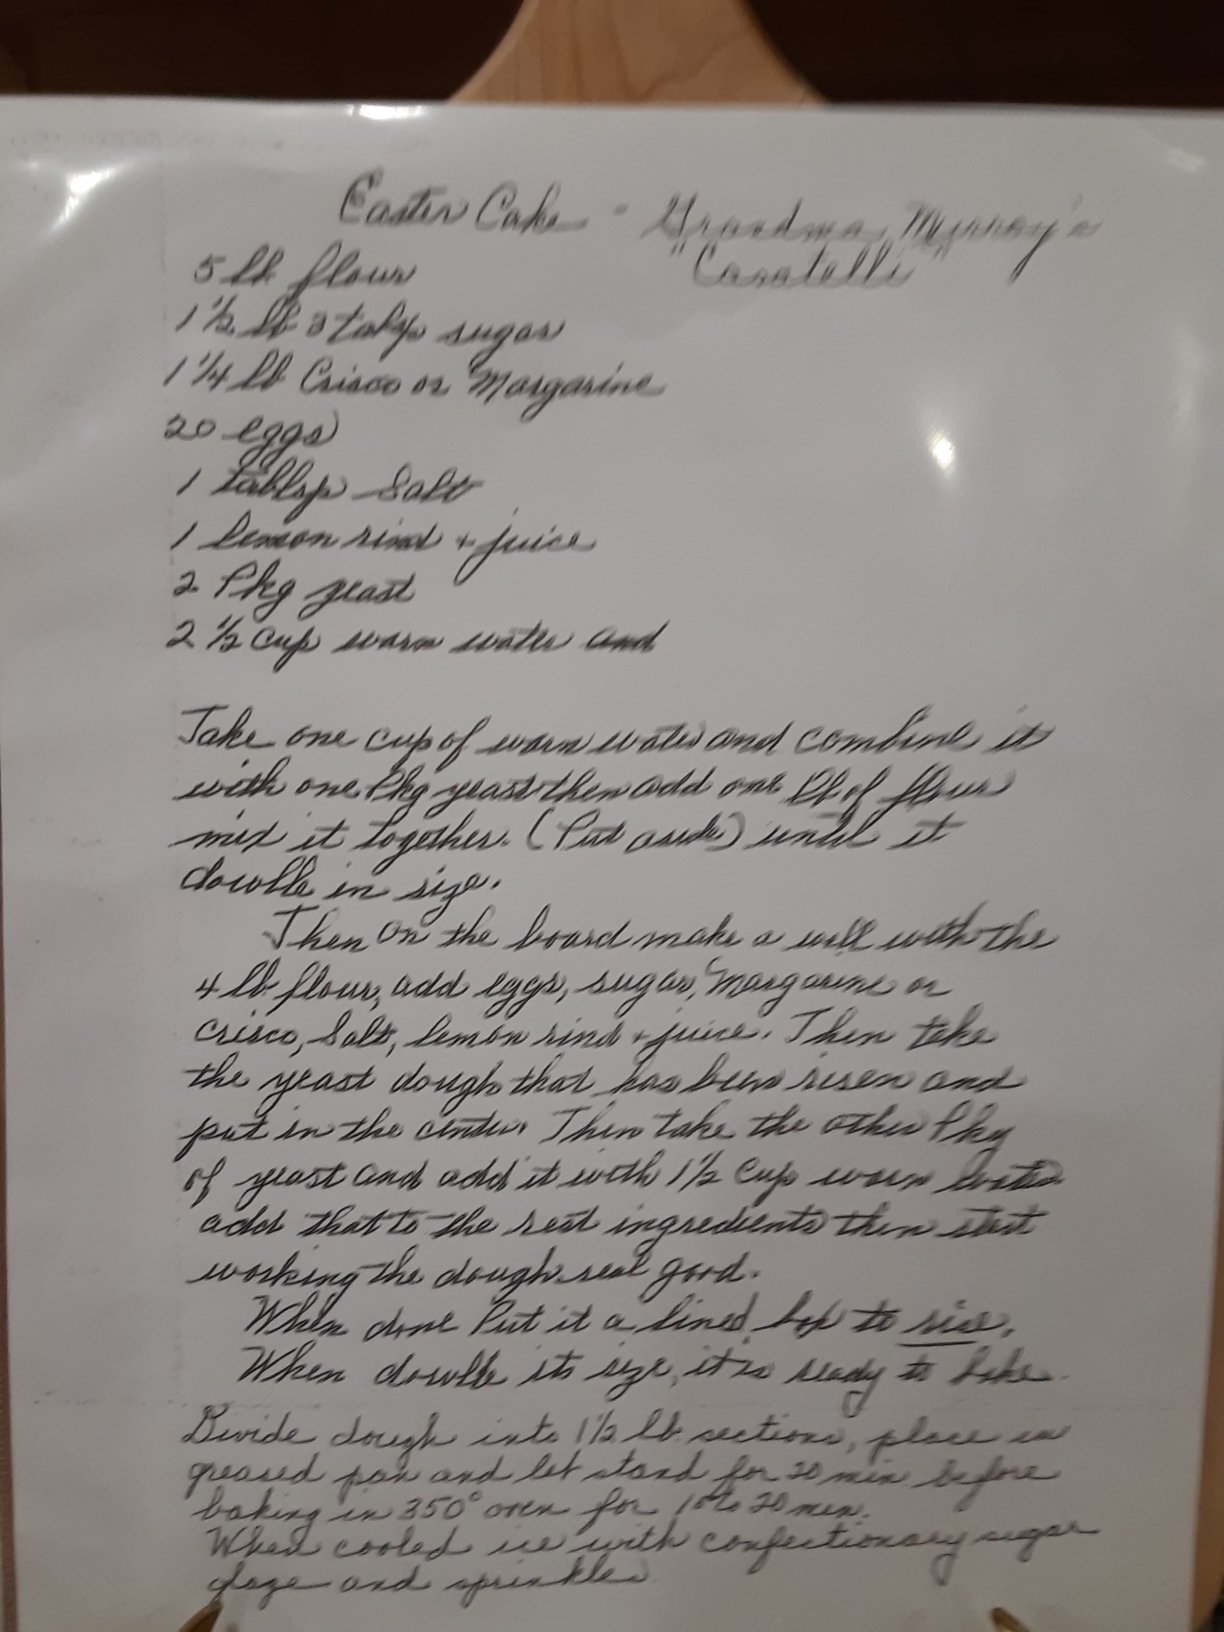 Easter Cake - Grandma Murray's
"Casatelli"
5 lb flour
1 1/2 lb 3 tablsp sugar
1 1/4 lb Crisco or Margarine
20 eggs
1 tablsp Salt
1 lemon rind + juice
2 Pkg yeast
2 1/2 cup warm water and
Take one cup of warm water and combine it
with one Pkg yeast then add one lb of flour
mix it together. (Put aside) until it
dowble in size.
Then on the board make a well with the
4 lb flour, add eggs, sugar, Margarine or
Crisco, Salt, lemon rind + juice. Then take
the yeast dough that has been risen and
put in the center. Then take the other Pkg
of yeast and add it with 1 1/2 Cup warm water
add that to the rest ingredients then start
working the dough real good.
When done Put it a lined box to rise.
When dowble its size, it is ready to bake.
Divide dough into 1 1/2 lb. sections, place in
greased pan and let stand for 20 min before
baking in 350° oven for 20 min.
When cooled ice with confectionary sugar
glaze and sprinkles